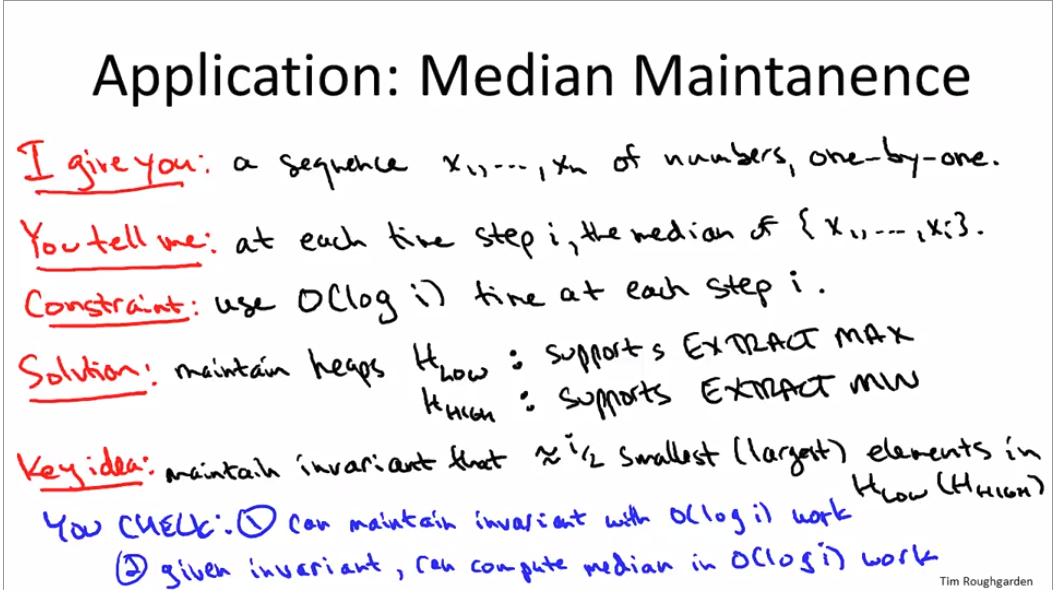 Application: Median Maintanence
I give you: a sequence x1,...,xn of numbers, one-by-one.
You tell me: at each time step i, the median of {x1,...,xi}.
Constraint: use O(log i) time at each step i.
Solution: maintain heaps HLOW : supports EXTRACT MAX
HHIGH : supports EXTRACT MIN
Key idea: maintain invariant that ≈ i/2 smallest (largest) elements in
HLOW (HHIGH)
YOU CHECK: ① can maintain invariant with O(log i) work
② given invariant, can compute median in O(log i) work
Tim Roughgarden